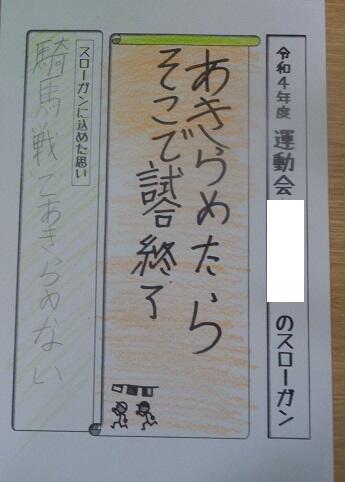 令和4年度 運動会 のスローガン
あきらめたら
そこで試合終了
スローガンに込めた思い
騎馬戦であきらめない